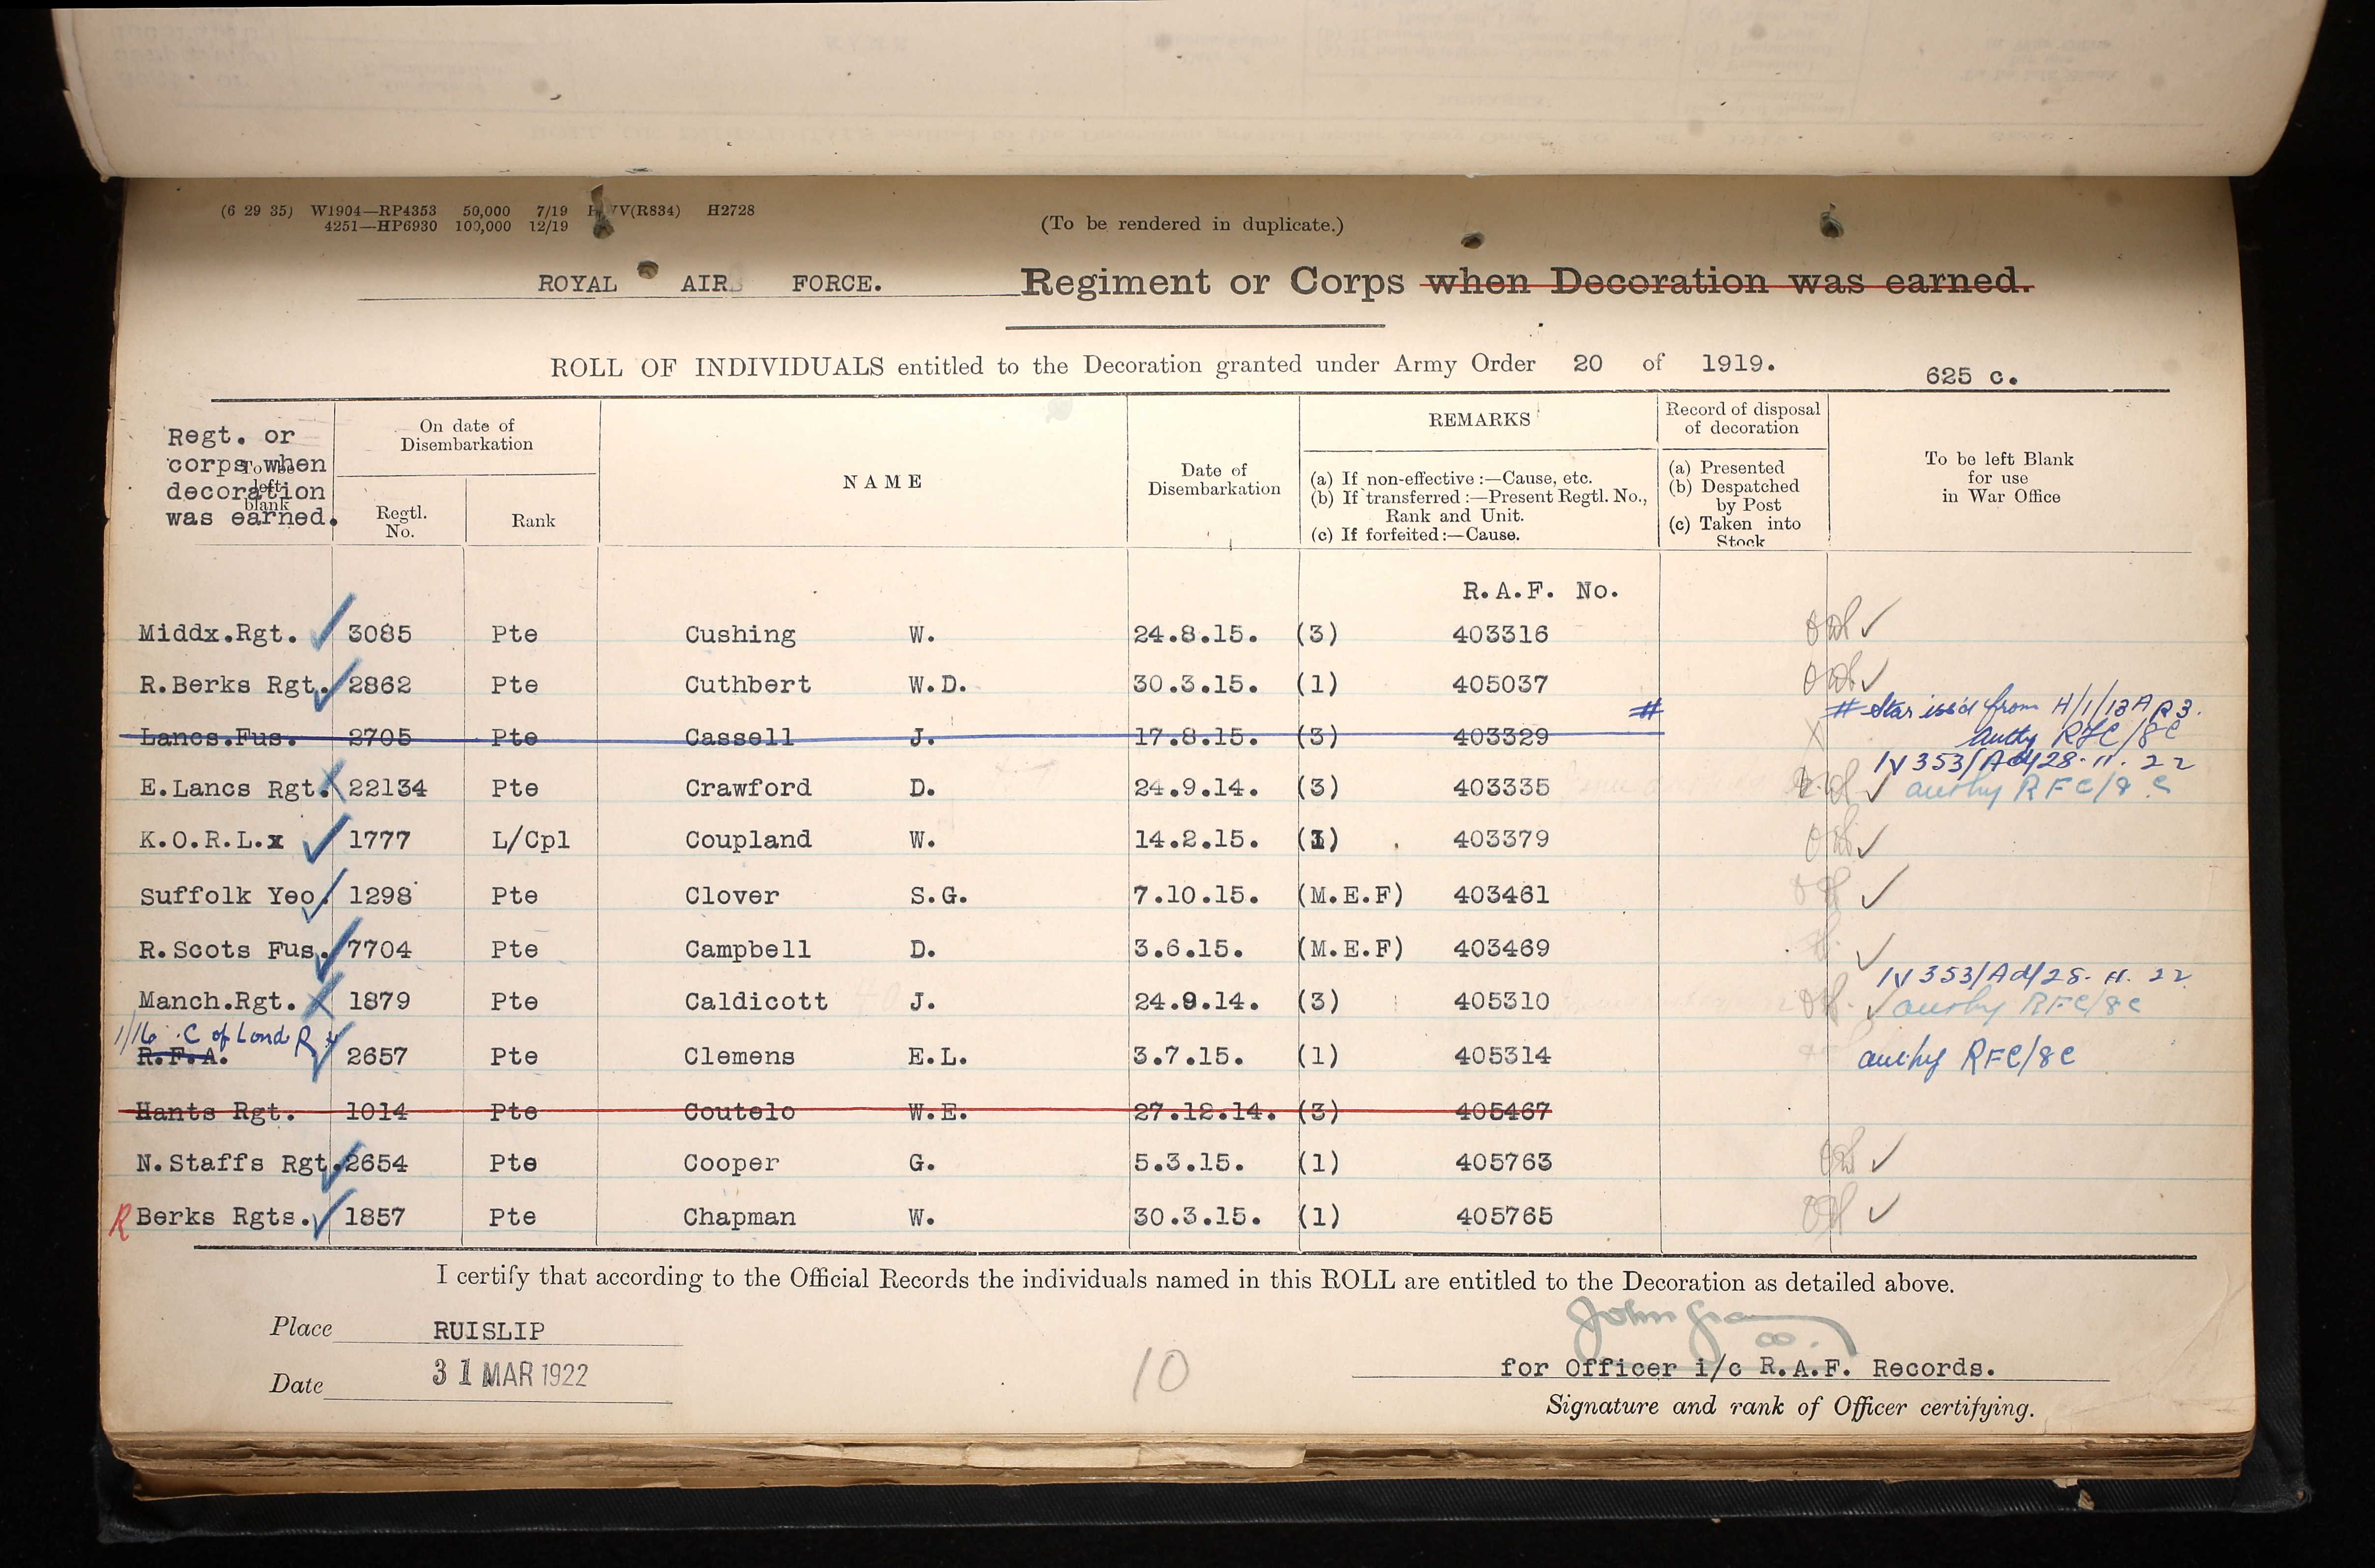 (6 29 35) W1904—RP4353 50,000 7/19 (R834) H2728
4251—HP6930 100,000 12/19
(To be rendered in duplicate.)
ROYAL AIR FORCE. Regiment or Corps when Decoration was earned.
ROLL OF INDIVIDUALS entitled to the Decoration granted under Army Order 20 of 1919.
625 c.
Regt. or corps when decoration was earned.
To be left blank
On date of Disembarkation
Regtl. No.
Rank
NAME
Date of Disembarkation
REMARKS
(a) If non-effective :—Cause, etc.
(b) If transferred :—Present Regtl. No., Rank and Unit.
(c) If forfeited :—Cause.
Record of disposal of decoration
(a) Presented
(b) Despatched by Post
(c) Taken into Stock
To be left Blank for use in War Office
R.A.F. No.
Middx.Rgt. 3085 Pte Cushing W. 24.8.15. (3) 403316
R.Berks Rgt. 2862 Pte Cuthbert W.D. 30.3.15. (1) 405037
# # Star iss'd from H/1/12A R3.
Lancs.Fus. 2705 Pte Cassell J. 17.8.15. (3) 403329 X Authy RFC/8C
IV 353/Ad/28.11.22
E.Lancs Rgt. 22134 Pte Crawford D. 24.9.14. (3) 403335 authy RFC/8C
K.O.R.L.x 1777 L/Cpl Coupland W. 14.2.15. (1) 403379
Suffolk Yeo. 1298 Pte Clover S.G. 7.10.15. (M.E.F) 403461
R.Scots Fus. 7704 Pte Campbell D. 3.6.15. (M.E.F) 403469
IV 353/Ad/28.11.22
Manch.Rgt. 1879 Pte Caldicott J. 24.9.14. (3) 405310 authy RFC/8C
1/16 C of Lond R
R.F.A. 2657 Pte Clemens E.L. 3.7.15. (1) 405314 authy RFC/8C
Hants Rgt. 1014 Pte Coutelo W.E. 27.12.14. (3) 405467
N.Staffs Rgt. 2654 Pte Cooper G. 5.3.15. (1) 405763
R Berks Rgts. 1857 Pte Chapman W. 30.3.15. (1) 405765
I certify that according to the Official Records the individuals named in this ROLL are entitled to the Decoration as detailed above.
Place RUISLIP
Date 31 MAR 1922
10
John
for Officer i/c R.A.F. Records.
Signature and rank of Officer certifying.